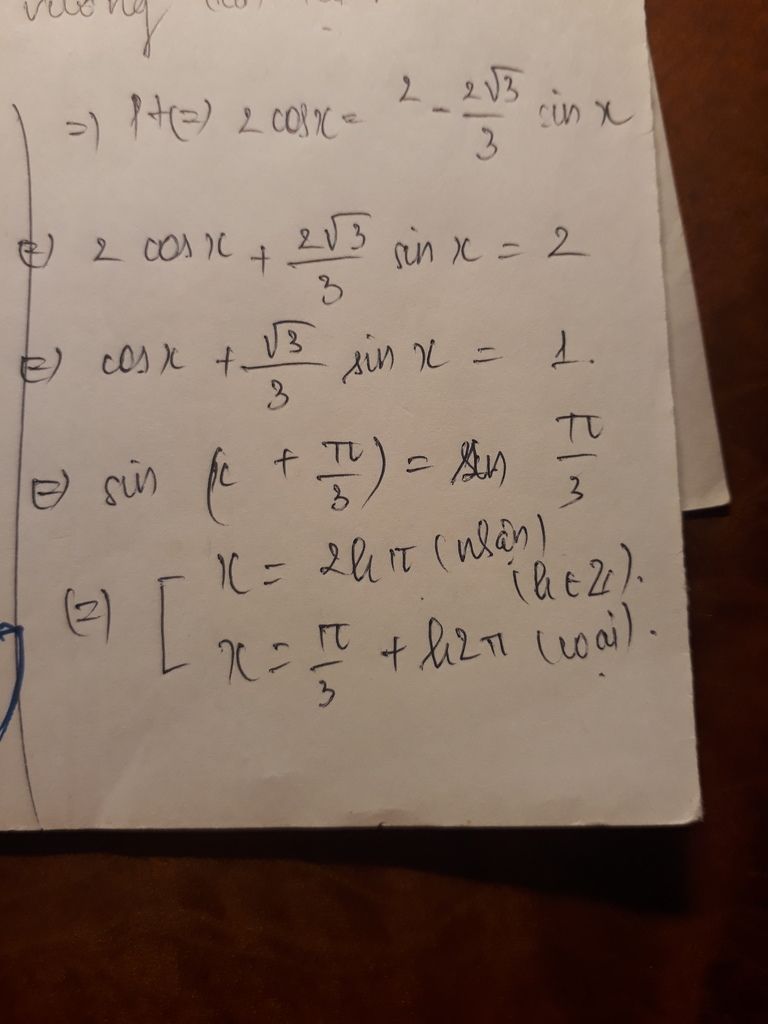 =) Pt(=) 2 cosx = 2 - 2√3/3 sin x
(=) 2 cosx + 2√3/3 sin x = 2
(=) cosx + √3/3 sin x = 1.
(=) sin (x + π/3) = sin π/3
(=) [ x = 2kπ (nhận) (k ∈ Z).
x = π/3 + k2π (loại).